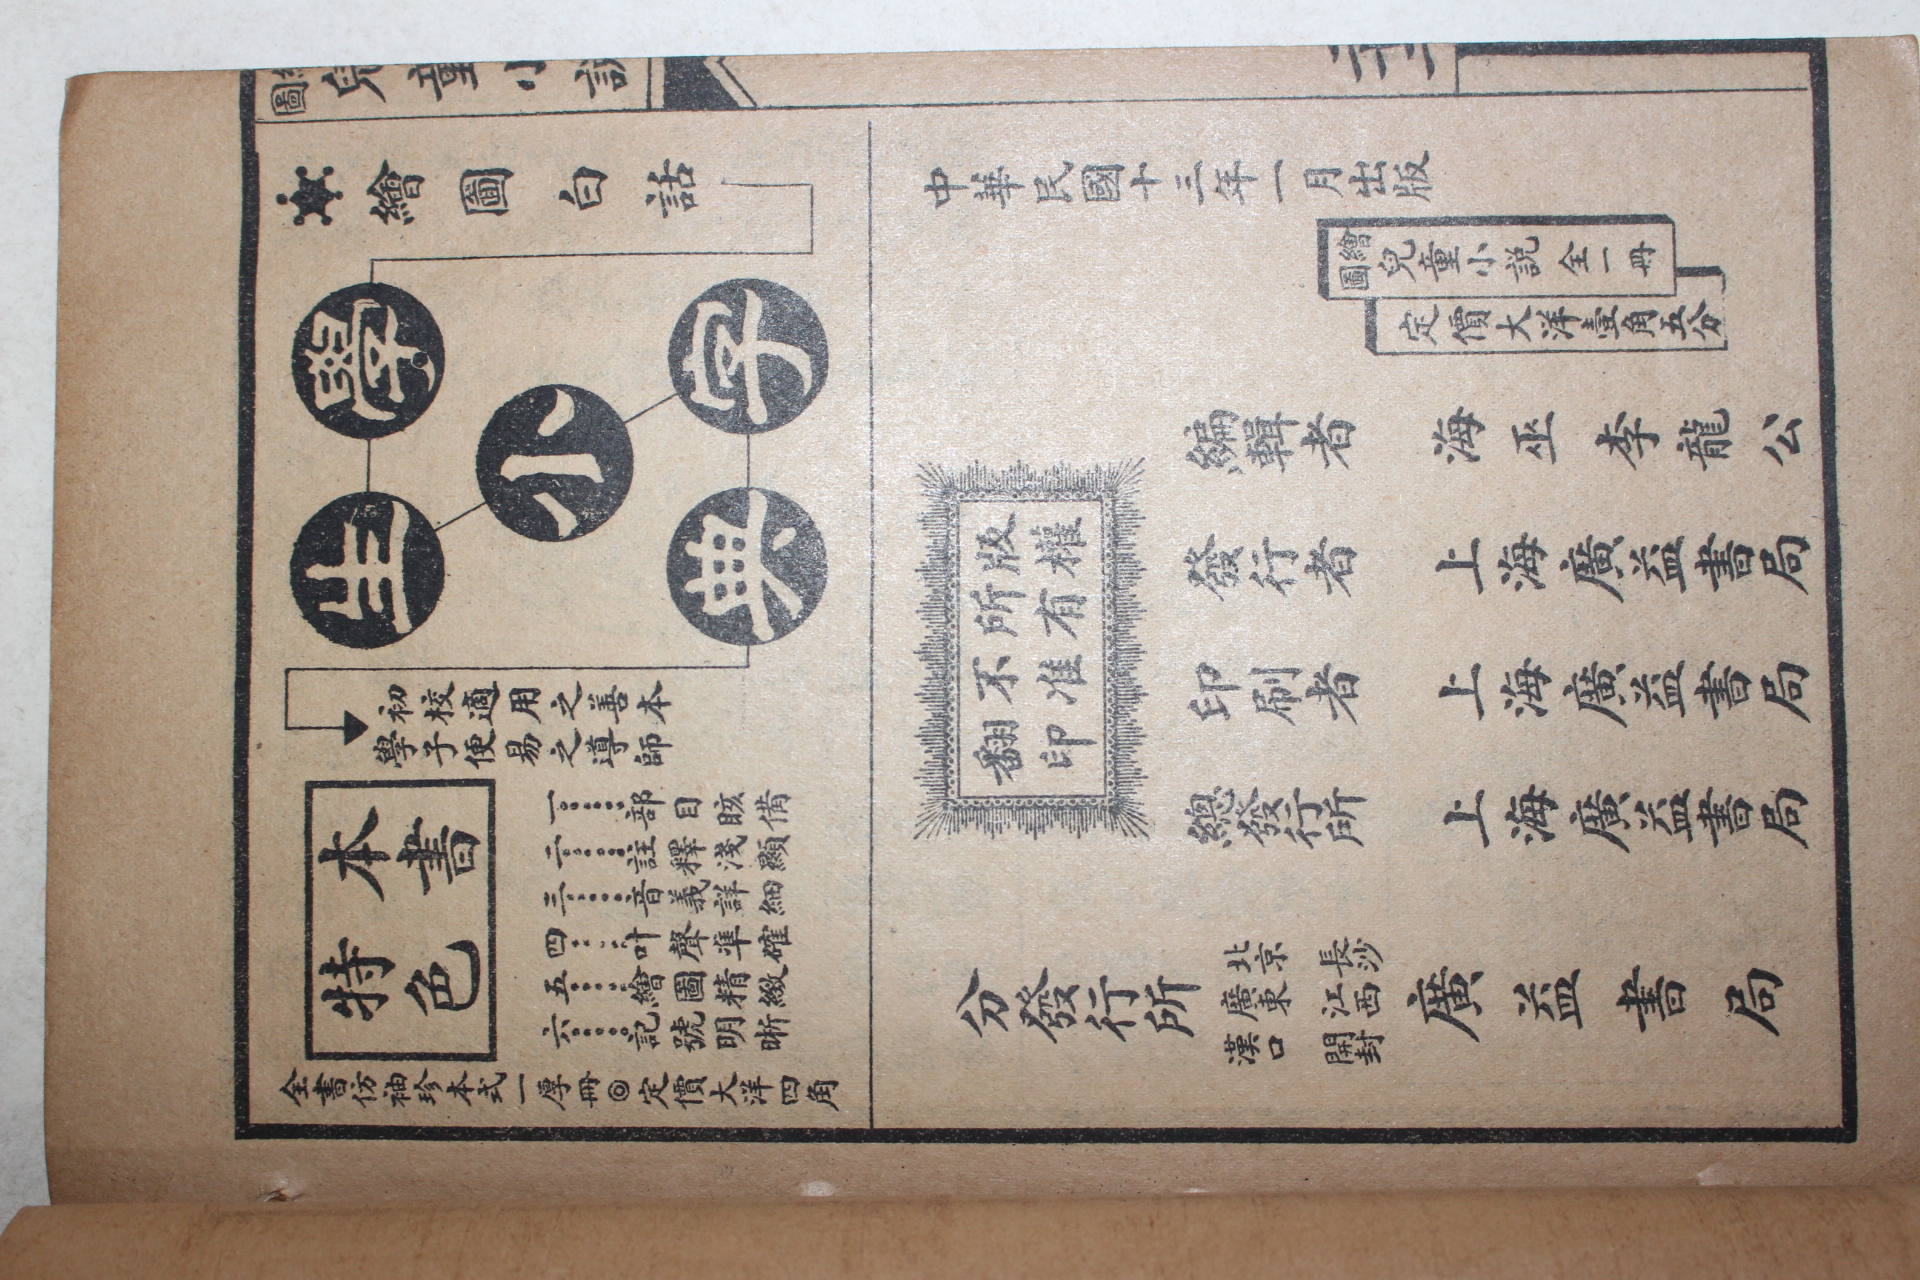 繪圖白話
學生小字典
初校適用之善本
學子便易之導師
本書特色
一……部目晐備
二……註釋淺顯
三……音義詳細
四……叶聲準確
五……繪圖精緻
六……記號明晰
全書仿袖珍本式一厚冊◎定價大洋四角
中華民國十三年一月出版
繪圖兒童小説全一冊
定價大洋壹角五分
版權所有不准翻印
編輯者 海巫李龍公
發行者 上海廣益書局
印刷者 上海廣益書局
總發行所 上海廣益書局
分發行所
北京 長沙
廣東 江西
漢口 開封
廣益書局
圖
兒童小説